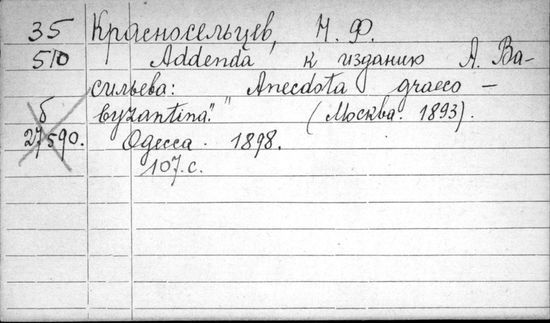 35 Красносельцев, Н. Ф.
510 "Addenda" к изданию А. Ва-
сильева: "Anecdota graeco -
б byzantina." (Москва. 1893).
27590. Одесса. 1898.
107. с.